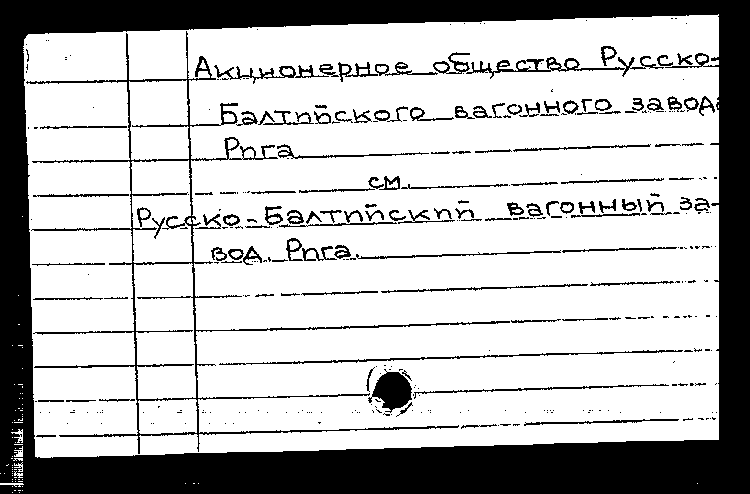 Акционерное общество Русско-
Балтийского вагонного завода
Рига
см.
Русско-Балтийский вагонный за-
вод. Рига.